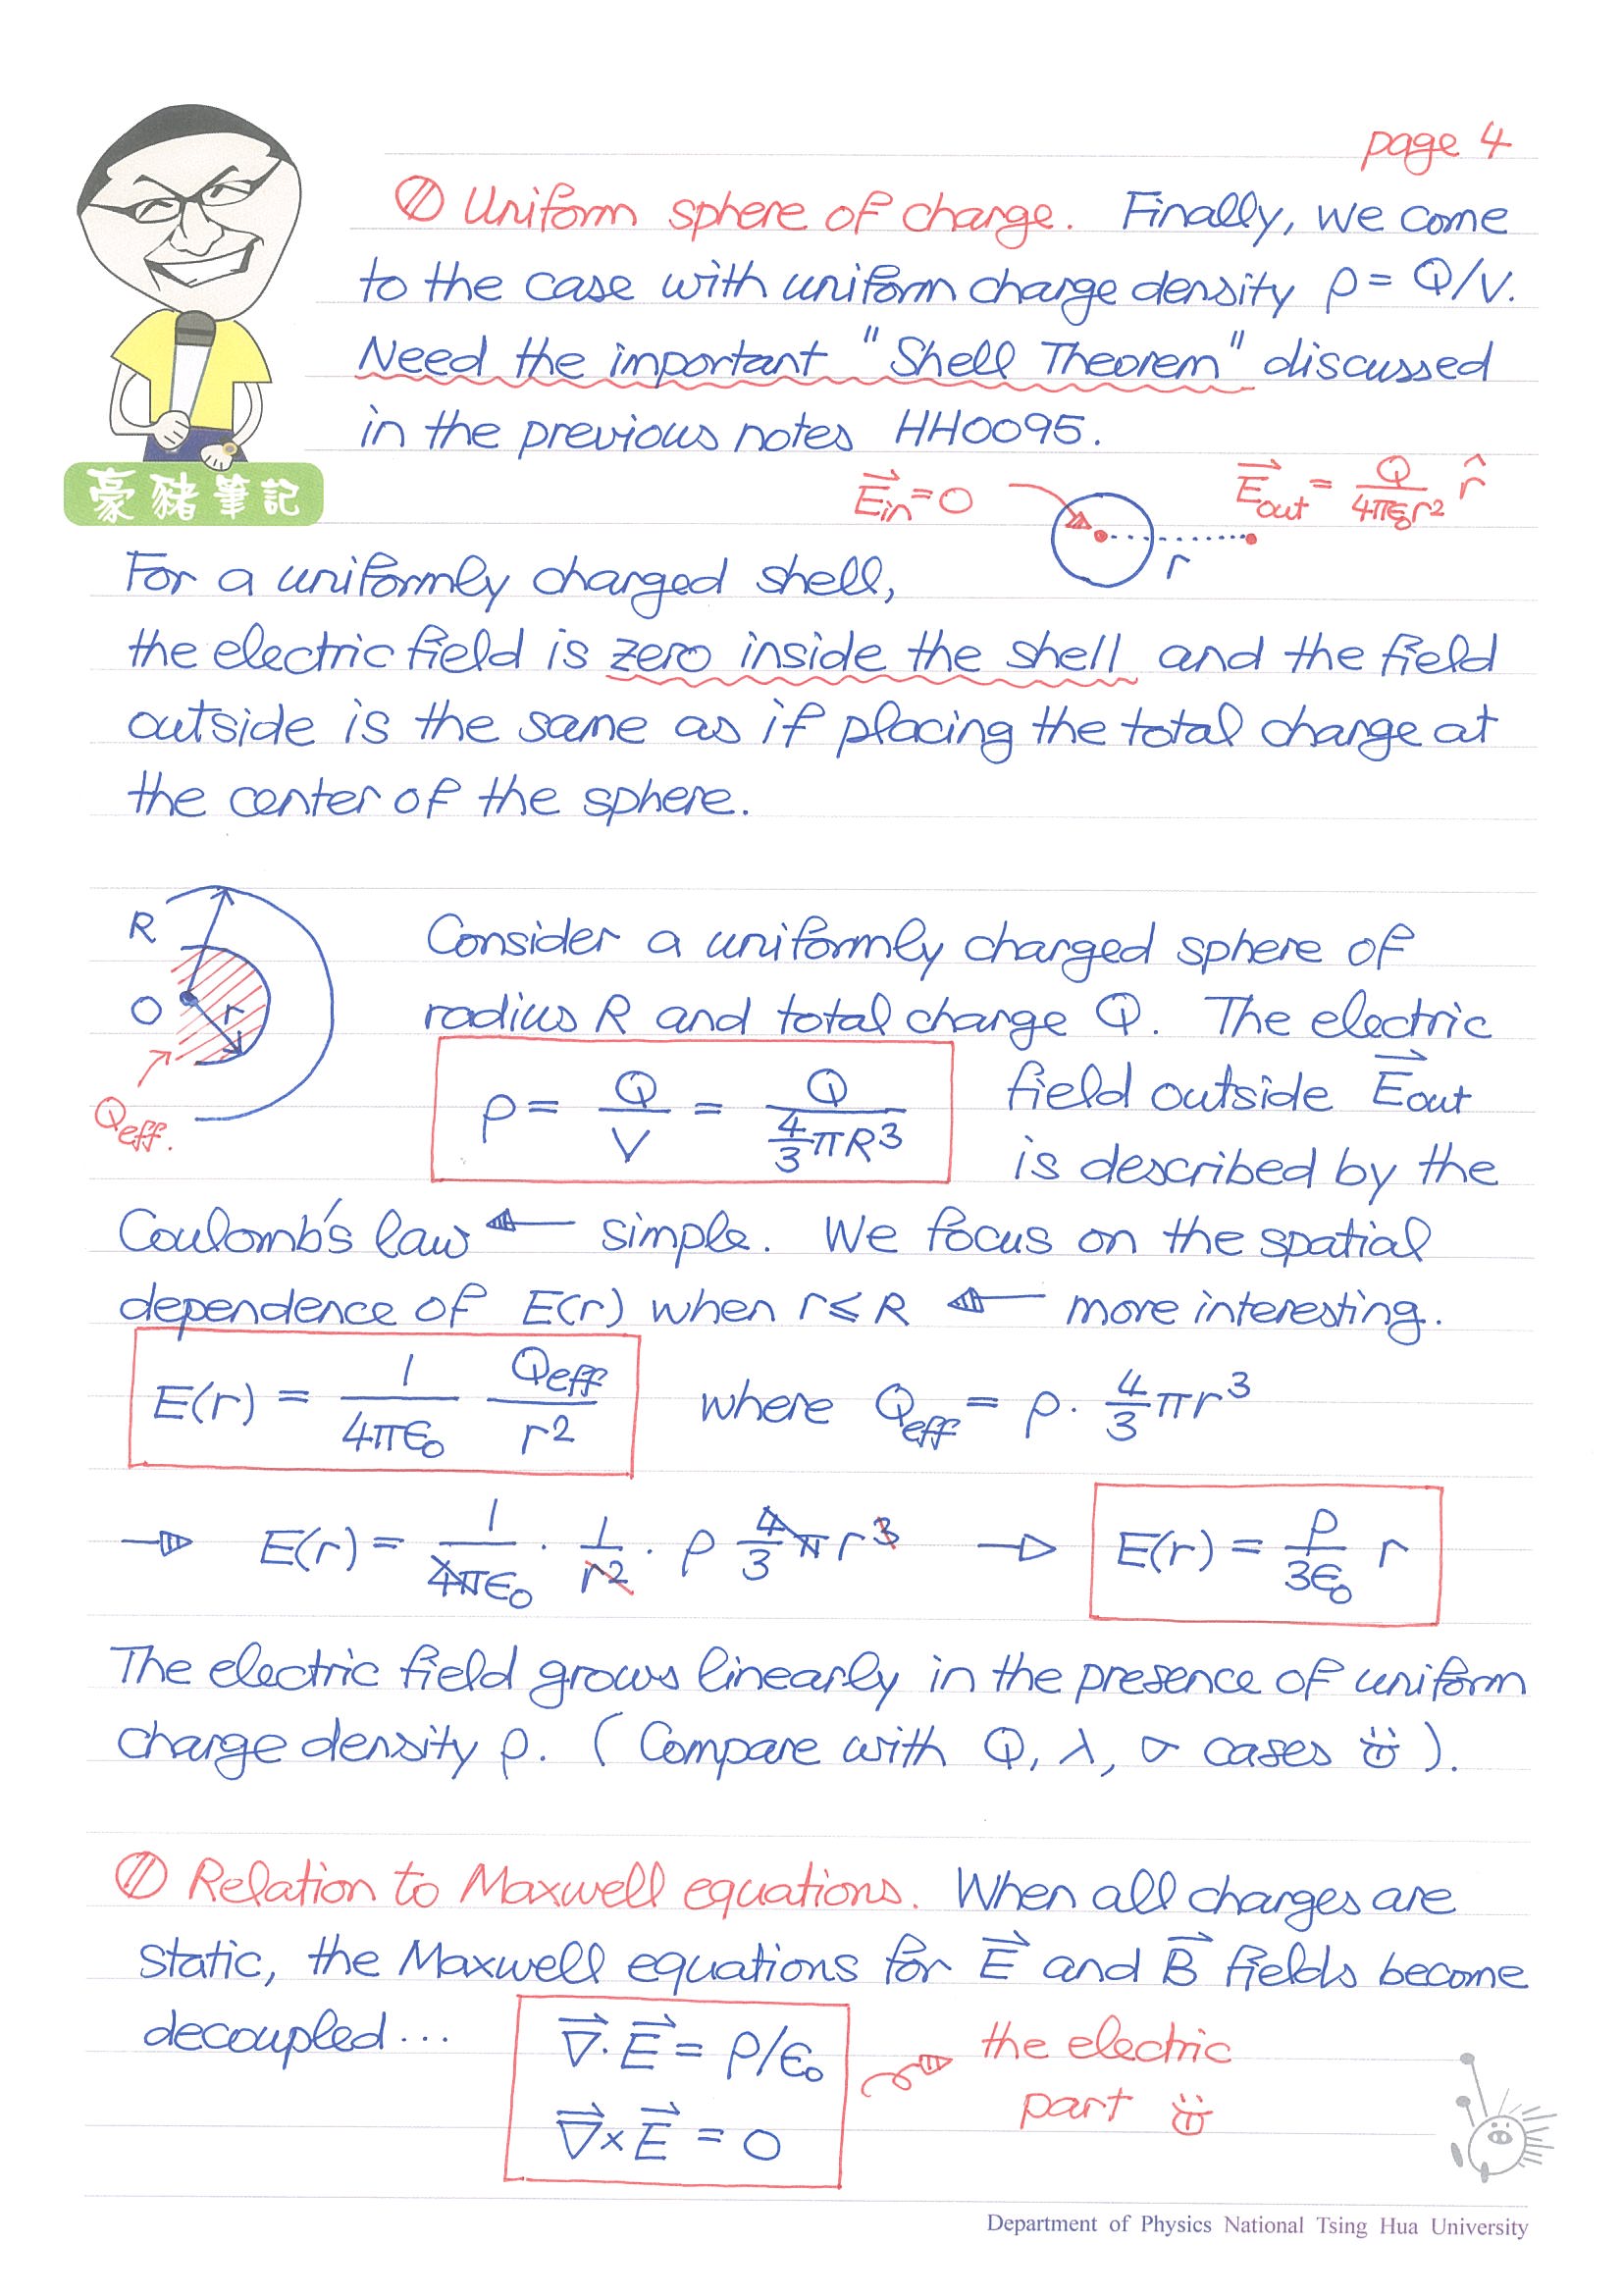 page 4
Uniform sphere of charge. Finally, we come
to the case with uniform charge density ρ = Q/V.
Need the important "Shell Theorem" discussed
in the previous notes HH0095.
豪豬筆記
E⃗in = 0
E⃗out = Q/(4πε₀r²) r̂
r
For a uniformly charged shell,
the electric field is zero inside the shell and the field
outside is the same as if placing the total charge at
the center of the sphere.
R
O
r
Qeff.
Consider a uniformly charged sphere of
radius R and total charge Q. The electric
ρ = Q/V = Q/(4/3 πR³)
field outside E⃗out
is described by the
Coulomb's law ← simple. We focus on the spatial
dependence of E(r) when r ≤ R ← more interesting.
E(r) = 1/(4πε₀) Qeff/r² where Qeff = ρ · 4/3 πr³
→ E(r) = 1/(4πε₀) · 1/r² · ρ 4/3 πr³ → E(r) = ρ/(3ε₀) r
The electric field grows linearly in the presence of uniform
charge density ρ. (Compare with Q, λ, σ cases ).
Relation to Maxwell equations. When all charges are
static, the Maxwell equations for E⃗ and B⃗ fields become
decoupled...
∇⃗·E⃗ = ρ/ε₀
∇⃗×E⃗ = 0
the electric
part
Department of Physics National Tsing Hua University